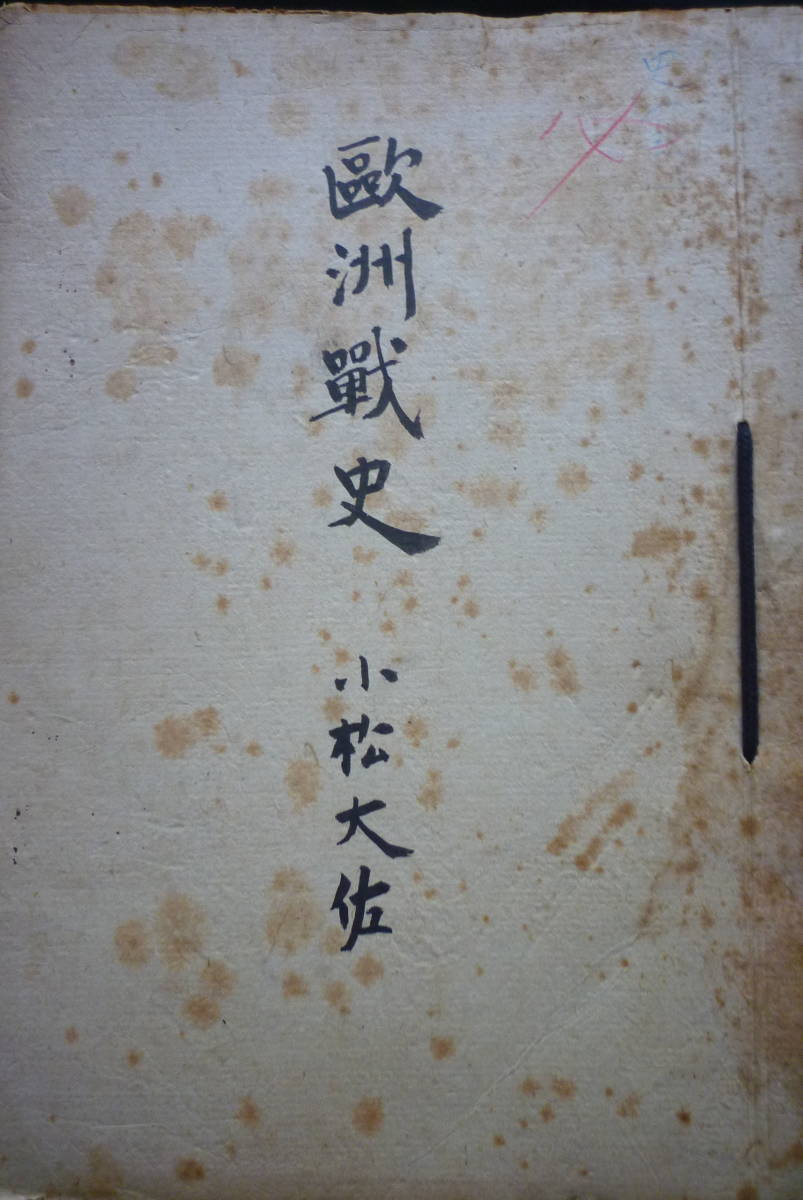 歐洲戰史
小松大佐